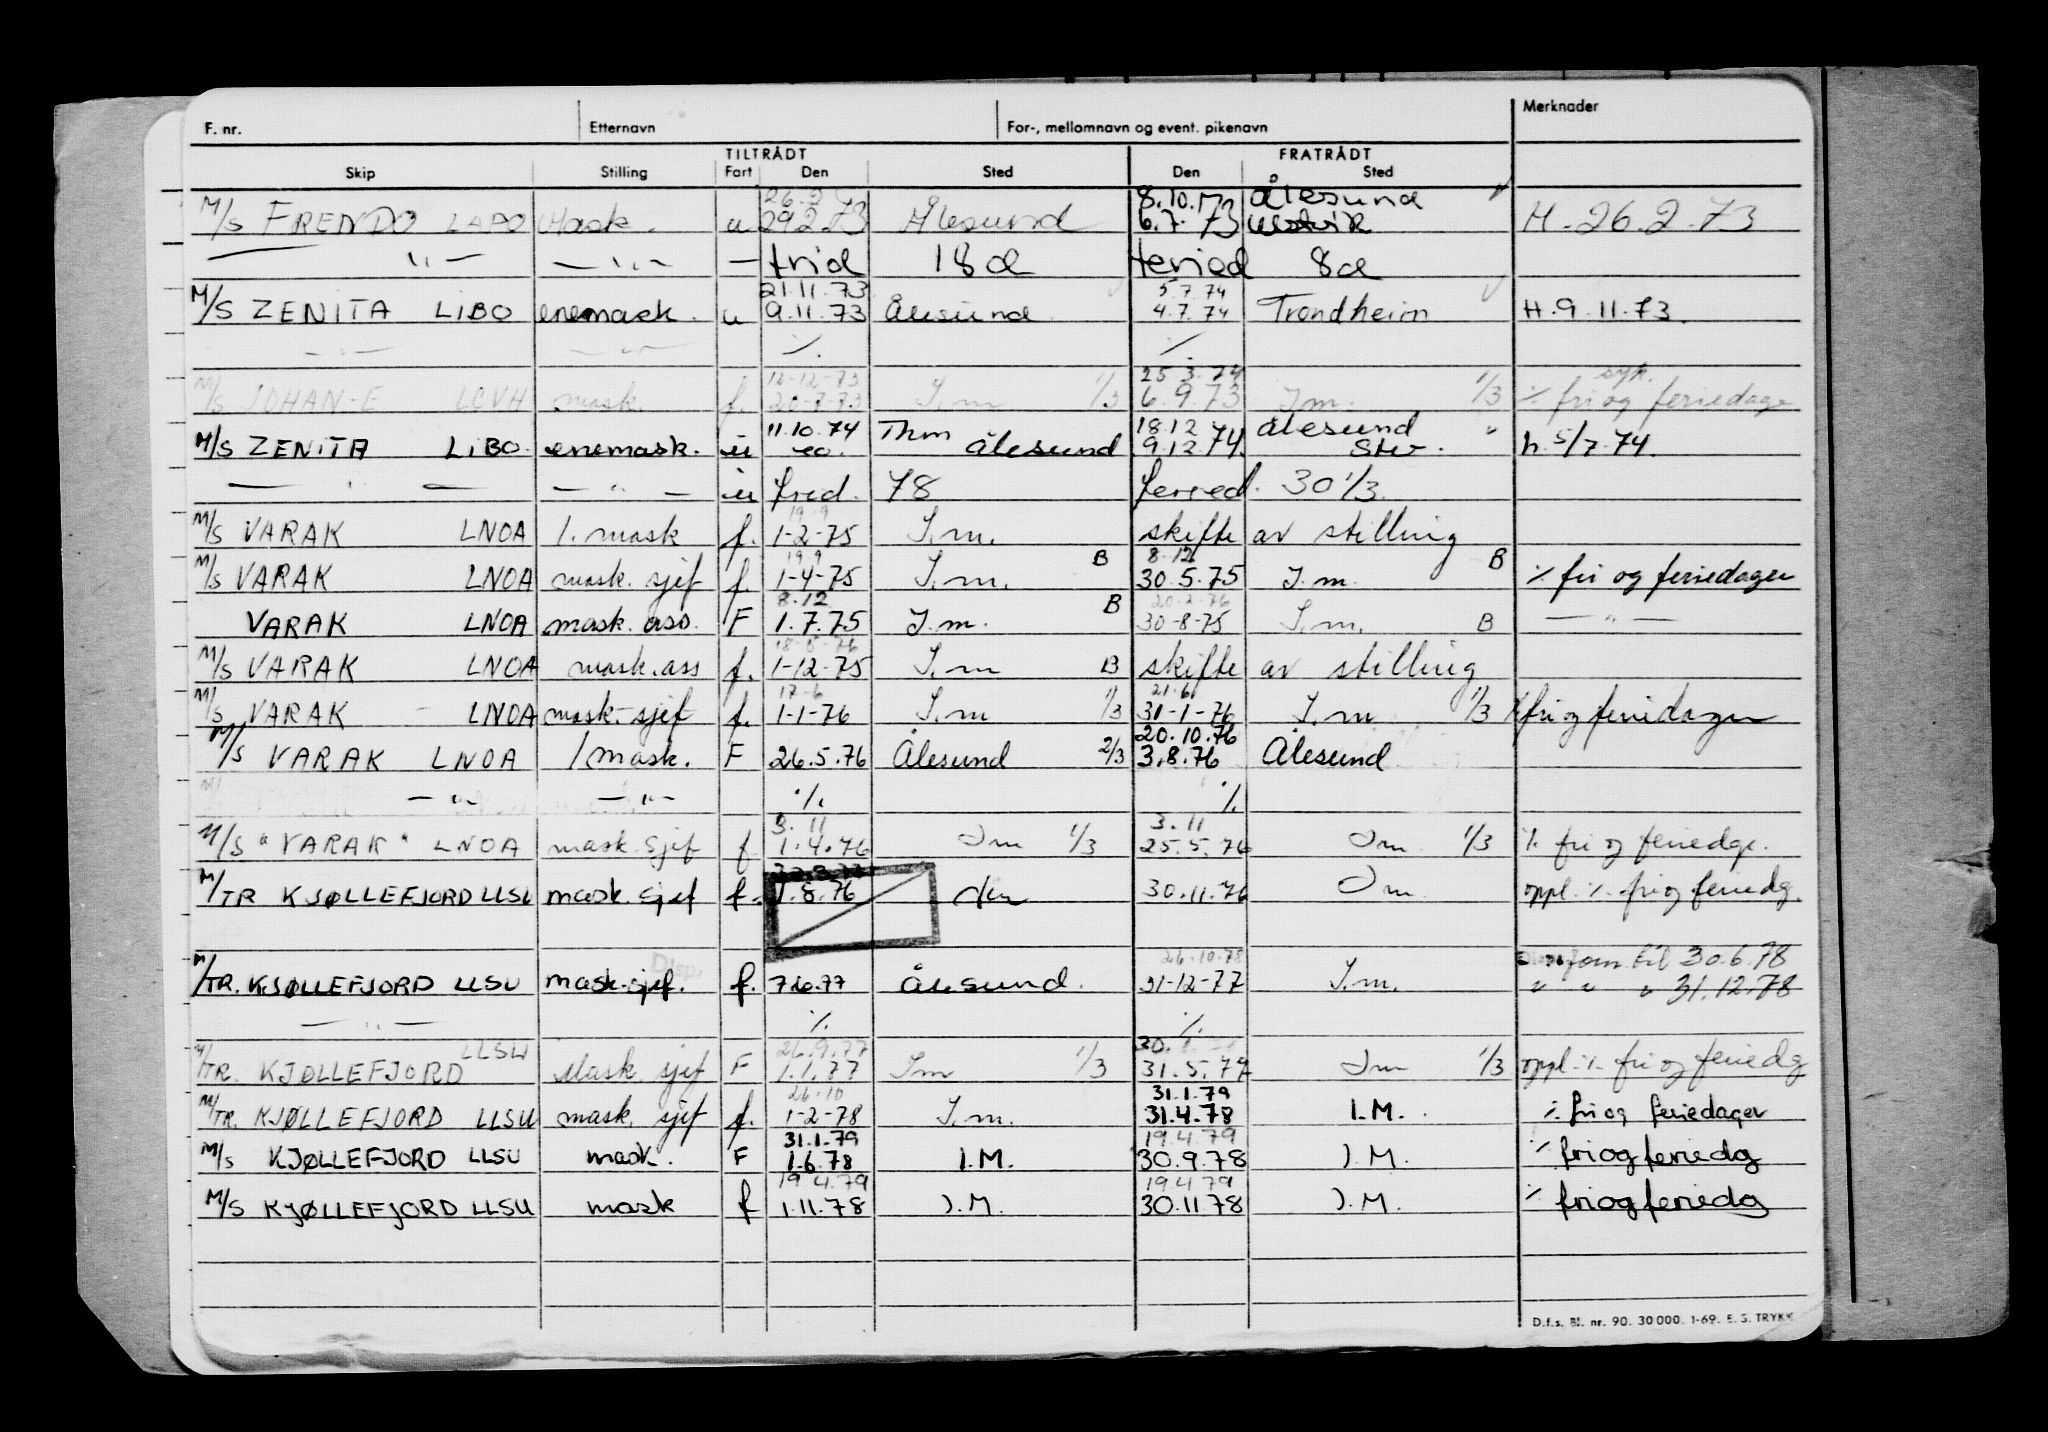 F. nr. Etternavn For-, mellomnavn og event. pikenavn Merknader
TILTRÅDT FRATRÅDT
Skip Stilling Fart Den Sted Den Sted
26.2 8.10.73 Ålesund
M/S FRENDO LAPO Mask. u 29.2.73 Ålesund 6.7.73 Ulstvik H. 26.2.73
— " — — " — — frid 18d feried 8d
21.11.73 5.7.74
M/S ZENITA LIBO enemask. u 9.11.73 Ålesund 4.7.74 Trondheim H. 9.11.73.
— " — — " — %. %
12-12-73 25.3.74 syk.
M/S JOHAN-E LCVH mask. f. 20-7-73 I.m 1/3 6.9.73 I.m. 1/3 % fri og feriedage
11.10.74 Thm 18.12 Ålesund "
M/S ZENITA LIBO. enemask. u Ålesund 9.12.74. Stv. h. 5/7-74.
— " — — " — u fried. 78 feried. 30 1/3.
19.9
M/S VARAK LNOA 1. mask f. 1-2-75 I.m. skifte av stilling
19.9 B 8.12 B
M/S VARAK LNOA mask. sjef f. 1-4-75 I.m. 30.5.75 I.m. % fri og feriedager
8.12 B 20.2.76
VARAK LNOA mask. ass. F 1.7.75 I.m. 30-8-75 I.m. B — " —
18-5-76
M/S VARAK LNOA mask. ass f. 1-12-75 I.m B skifte av stilling
17-6 21.6
M/S VARAK LNOA mask. sjef f. 1-1-76 I.m 1/3 31-1-76 I.m 1/3 % fri og feriedager
20.10.76
M/S VARAK LNOA 1 mask. F 26.5.76 Ålesund 2/3 3.8.76 Ålesund
— " — — " — %. %.
3.11 3.11
M/S "VARAK" LNOA mask sjef f 1.4.76 Im 1/3 25.5.76 Im 1/3 %. fri og feriedge.
M/TR KJØLLEFJORD LLSU mask. sjef f. 1.8.76 30.11.76 Im oppl. %. fri og feriedg.
Disp. 26.10.78 fom til 30.6.78
M/TR. KJØLLEFJORD LLSU mask-sjef. f. 7.6.77 Ålesund. 31-12-77 I.m. " " " 31.12.78
— " — %. %.
LLSU 26.9.77 30.
M/TR. KJØLLEFJORD Mask. sjef F 1.1.77 Im 1/3 31.5.77 Im 1/3 oppl. %. fri og feriedg
26-10 31.1.79
M/TR. KJØLLEFJORD LLSU mask. sjef f. 1-2-78 I.m. 31.4.78 I.M. %. fri og feriedager
31.1.79 19.4.79
M/S KJØLLEFJORD LLSU mask. F 1.6.78 I.M. 30.9.78 I.M. % fri og feriedg
19.4.79 19.4.79
M/S KJØLLEFJORD LLSU mask f 1.11.78 I.M. 30.11.78 I.M. % fri og feriedg
D.f.s. Bl. nr. 90. 30 000. 1-69. E. S. TRYKK